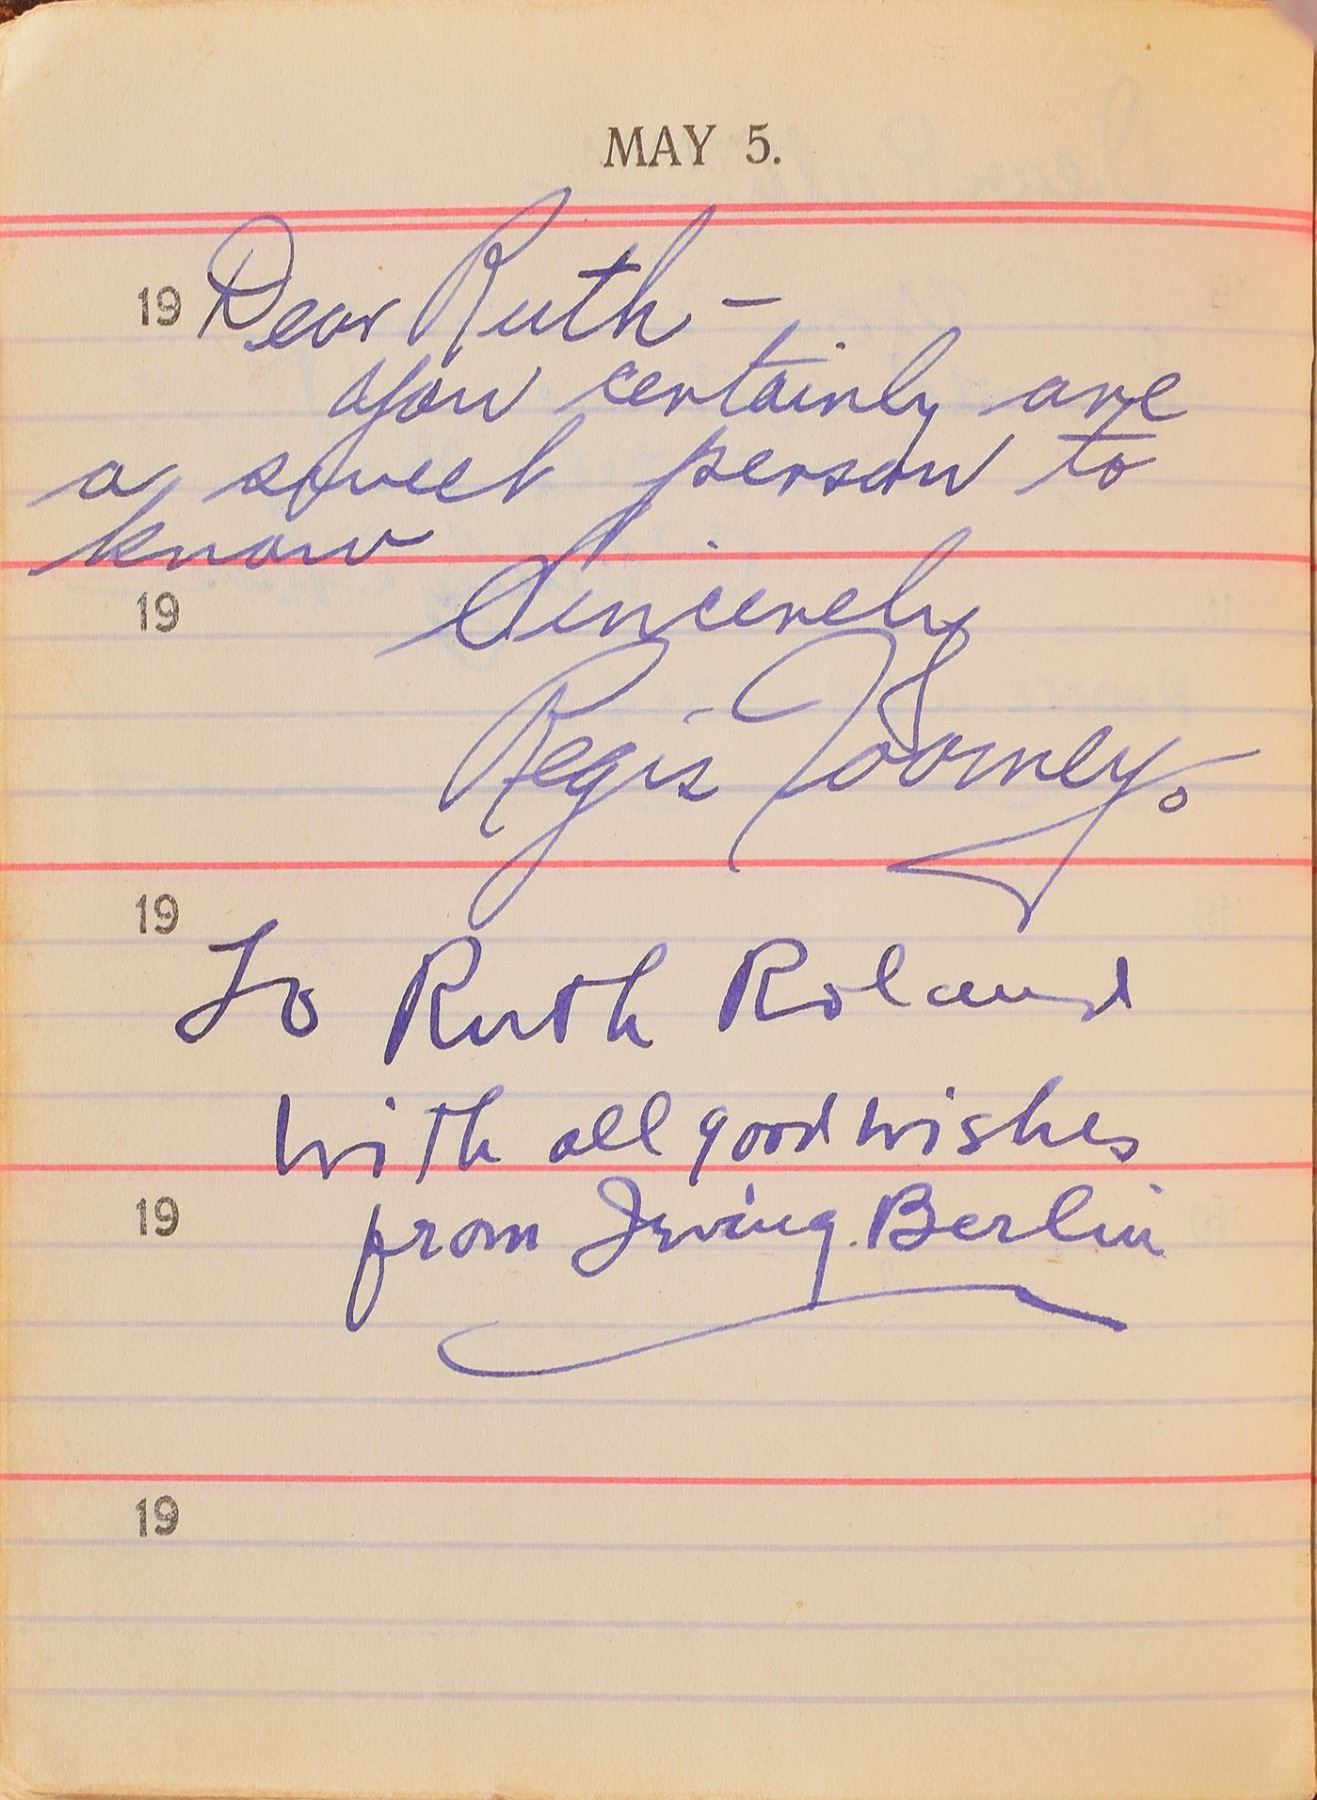 MAY 5.
19 Dear Ruth –
you certainly are
a sweet person to
know
19 Sincerely
Regis Toomey.
19
To Ruth Roland
with all good wishes
19 from Irving Berlin
19